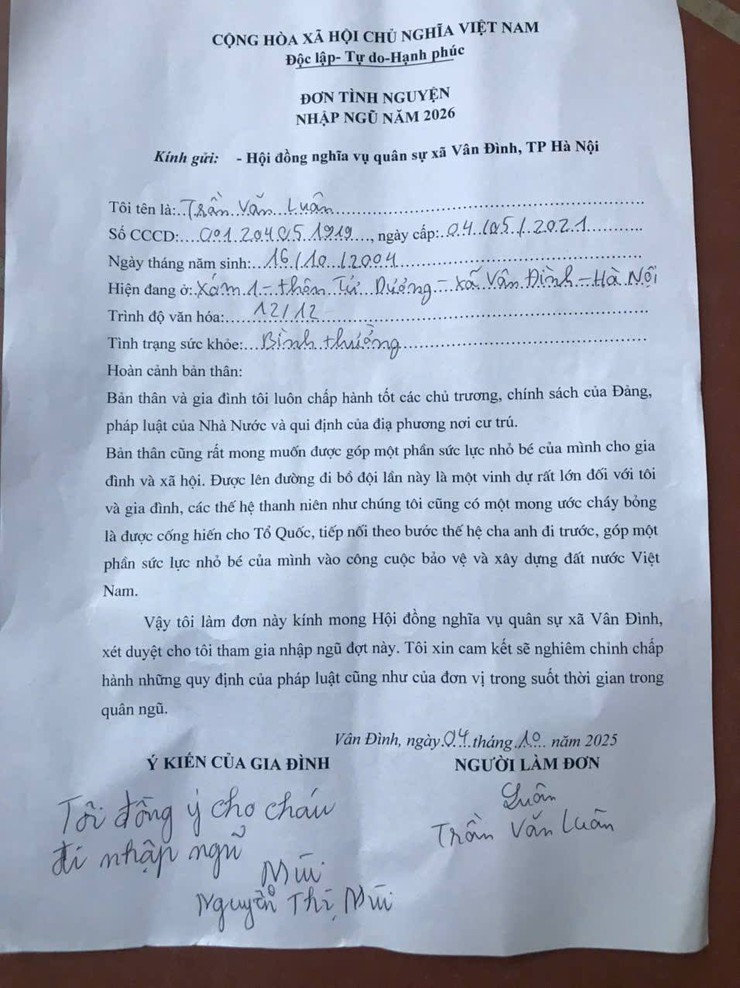 CỘNG HÒA XÃ HỘI CHỦ NGHĨA VIỆT NAM
Độc lập- Tự do-Hạnh phúc
ĐƠN TÌNH NGUYỆN
NHẬP NGŨ NĂM 2026
Kính gửi: - Hội đồng nghĩa vụ quân sự xã Vân Đình, TP Hà Nội
Tôi tên là: Trần Văn Luân
Số CCCD: 001204051919, ngày cấp: 04/05/2021
Ngày tháng năm sinh: 16/10/2004
Hiện đang ở: Xóm 1 - thôn Tử Dương - xã Vân Đình - Hà Nội
Trình độ văn hóa: 12/12
Tình trạng sức khỏe: Bình thường
Hoàn cảnh bản thân:
Bản thân và gia đình tôi luôn chấp hành tốt các chủ trương, chính sách của Đảng,
pháp luật của Nhà Nước và qui định của địa phương nơi cư trú.
Bản thân cũng rất mong muốn được góp một phần sức lực nhỏ bé của mình cho gia
đình và xã hội. Được lên đường đi bồ đội lần này là một vinh dự rất lớn đối với tôi
và gia đình, các thế hệ thanh niên như chúng tôi cũng có một mong ước cháy bỏng
là được cống hiến cho Tổ Quốc, tiếp nối theo bước thế hệ cha anh đi trước, góp một
phần sức lực nhỏ bé của mình vào công cuộc bảo vệ và xây dựng đất nước Việt
Nam.
Vậy tôi làm đơn này kính mong Hội đồng nghĩa vụ quân sự xã Vân Đình,
xét duyệt cho tôi tham gia nhập ngũ đợt này. Tôi xin cam kết sẽ nghiêm chỉnh chấp
hành những quy định của pháp luật cũng như của đơn vị trong suốt thời gian trong
quân ngũ.
Vân Đình, ngày 04 tháng 10 năm 2025
Ý KIẾN CỦA GIA ĐÌNH
Tôi đồng ý cho cháu
đi nhập ngũ
Mùi
Nguyễn Thị Mùi
NGƯỜI LÀM ĐƠN
Luân
Trần Văn Luân